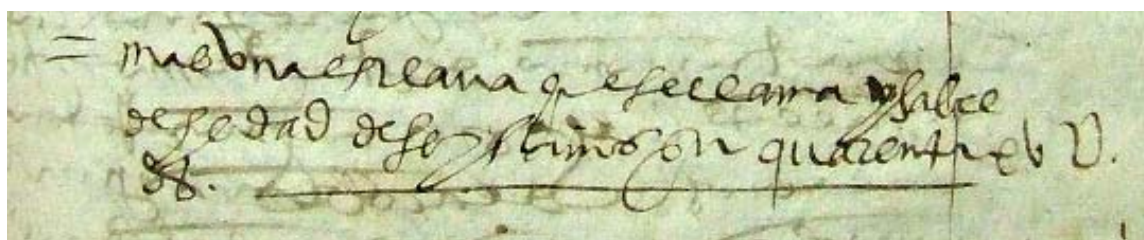 = mas vna esclaua que se llama ysabel
de hedad de seys años en quarenta
ds.